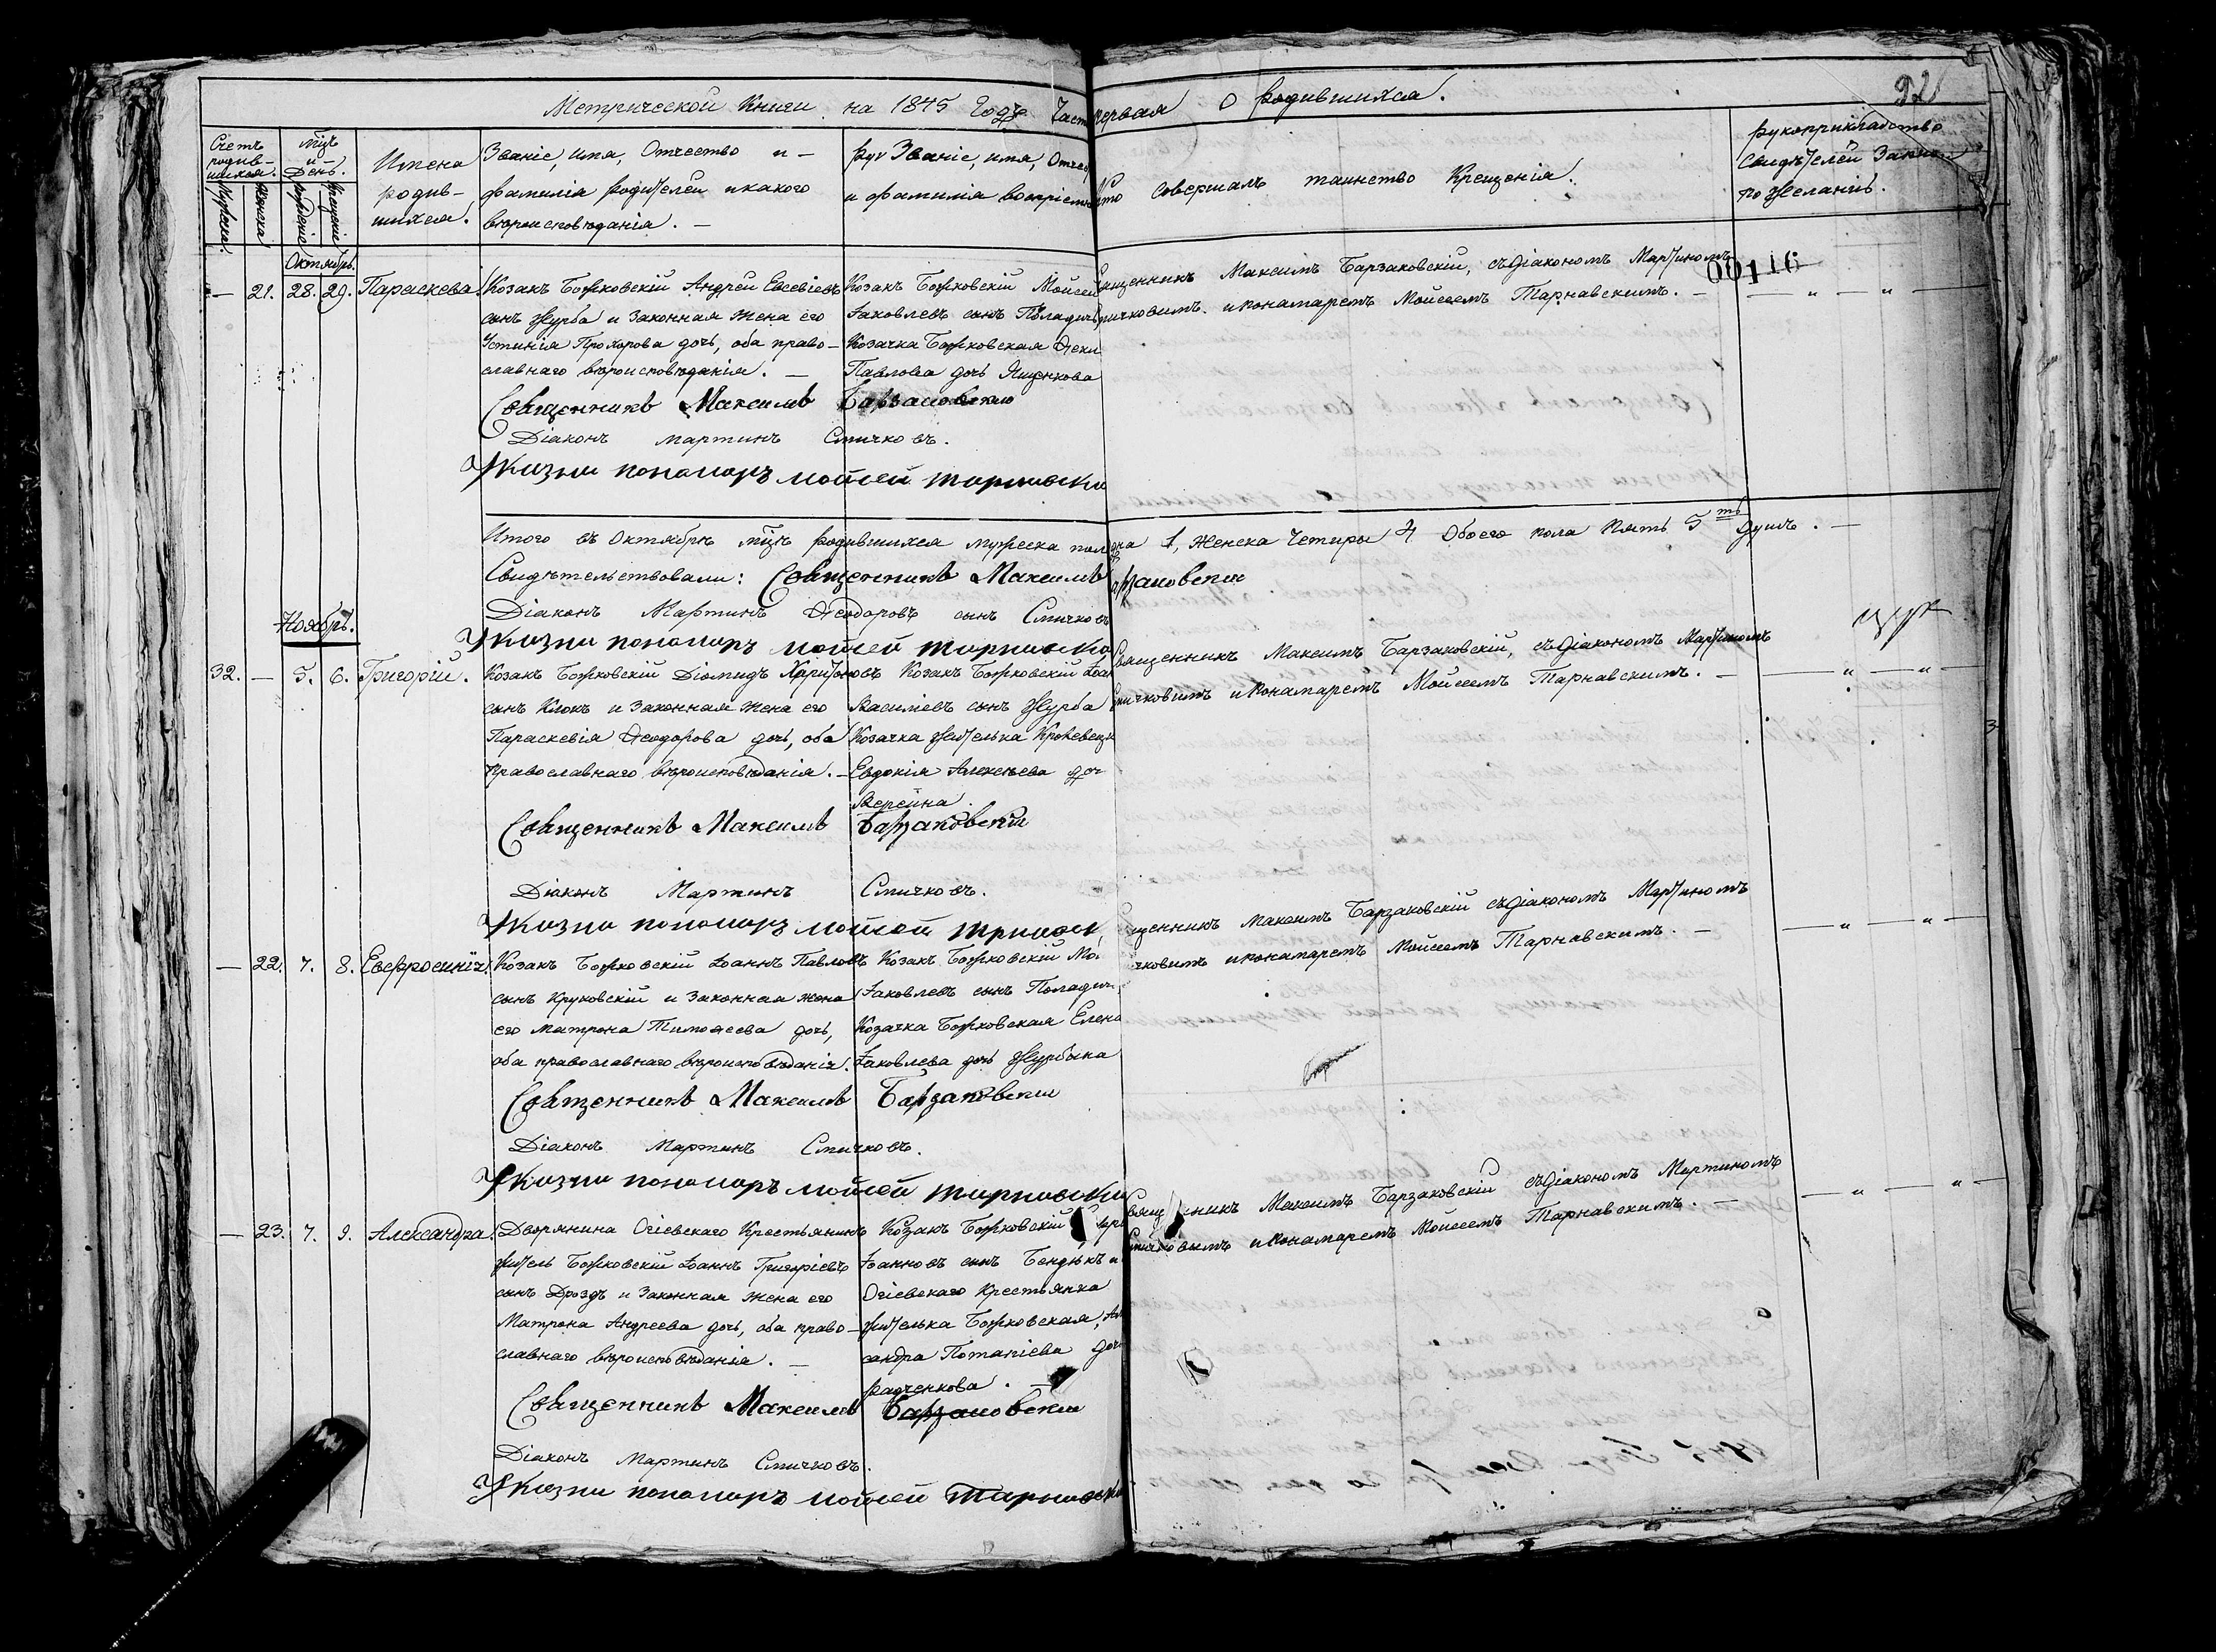 Метрической Книги на 1845 Годъ Часть первая О родившихся.
92
Счетъ родив-шихся.
Мужеска.
Женска
Мѣцъ и День.
рожденіе
крещеніе
Имена родив-шихся.
Званіе, имя, Отчество и фамилія родителей и какого вѣроисповѣданія.
Званіе, имя, Отчес и фамилія воспріемн
Кто совершалъ таинство Крещенія.
рукоприкладство свидѣтелей записи по желанію.
Октябрь.
00116
— 21. 28. 29. Параскева.
Козакъ Божковскій Андрей Евсевіевъ
сынъ Журба и Законная жена его
Устинія Прохорова дочь, оба право-
славнаго вѣроисповѣданія. —
Козакъ Божковскій Моисей
Іаковлевъ сынъ Поладичъ
Козачка Божковская Ѳекл
Павлова дочь Ященкова
Священникъ Максимъ Барзаковскій, съ діакономъ Мартиномъ
Смичковимъ. и понамаремъ Моисеемъ Тарнавскимъ. —
Священникъ Максимъ Барзаковскій
Діаконъ Мартинъ Смичковъ.
Указни пономаръ Мойсей Тарнавски
Итого въ Октябрѣ мѣцѣ родившихся мужеска пола 1, Женска Четыри 4 Обоего пола Пять 5ть душъ. —
Свидѣтельствовали: Священникъ Максимъ Барзаковскій
Діаконъ Мартинъ Ѳеодоровъ сынъ Смичковъ
Указни пономаръ Мойсей Тарнавски
Ноябрь.
32. — 5. 6. Григорій.
Козакъ Божковскій Діомидъ Харитоновъ
сынъ Клокъ и Законная жена его
Параскевія Ѳеодорова дочь, оба
православнаго вѣроисповѣданія. —
Козакъ Божковскій Іоан
Василіевъ сынъ Журба
Козачка жителька Кролевецк
Евдокія Алексѣева доч
Верейна.
Священникъ Максимъ Барзаковскій, съ діакономъ Мартиномъ
Смичковимъ и понамаремъ Моисеемъ Тарнавскимъ. —
Священникъ Максимъ Барзаковскій
Діаконъ Мартинъ Смичковъ.
Указни пономаръ Мойсей
— 22. 7. 8. Евфросинія.
Козакъ Божковскій Іоаннъ Павловъ
сынъ Круковскій и Законная жена
его Матрона Тимоѳеева дочь,
оба православнаго вѣроисповѣданія.
Козакъ Божковскій Мо
Іаковлевъ сынъ Поладич
Козачка Божковская Елена
Іаковлева дочь Журбина
щенникъ Максимъ Барзаковскій съ діакономъ Мартиномъ
чковимъ и понамаремъ Моисеемъ Тарнавскимъ. —
Священникъ Максимъ Барзаковскій
Діаконъ Мартинъ Смичковъ.
Указни пономаръ Мойсей Тарнавски
— 23. 7. 9. Александра.
Дворянина Огіевскаго Крестьянинъ
житель Божковскій Іоаннъ Григоріевъ
сынъ Дроздъ и Законная жена его
Матрона Андреева дочь, оба право-
славнаго вѣроисповѣданія. —
Козакъ Божковскій
Іоанновъ сынъ Бендикъ и
Огіевскаго Крестьянка
жителька Божковская, Але
сандра Потапіева доч
Радченкова. —
Священникъ Максимъ Барзаковскій съ діакономъ Мартиномъ
Смичковымъ и понамаремъ Моисеемъ Тарнавскимъ. —
Священникъ Максимъ Барзаковскій
Діаконъ Мартинъ Смичковъ.
Указни пономаръ Мойсей Тарнавски